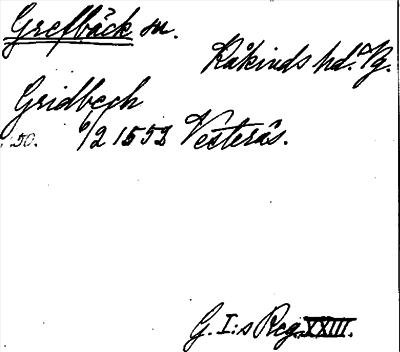 Grefbäck sn.
Kåkinds hd. Vg.
Gridbech
50. 6/2 1552 Vesterås.
G. I:s Reg. XXIII.